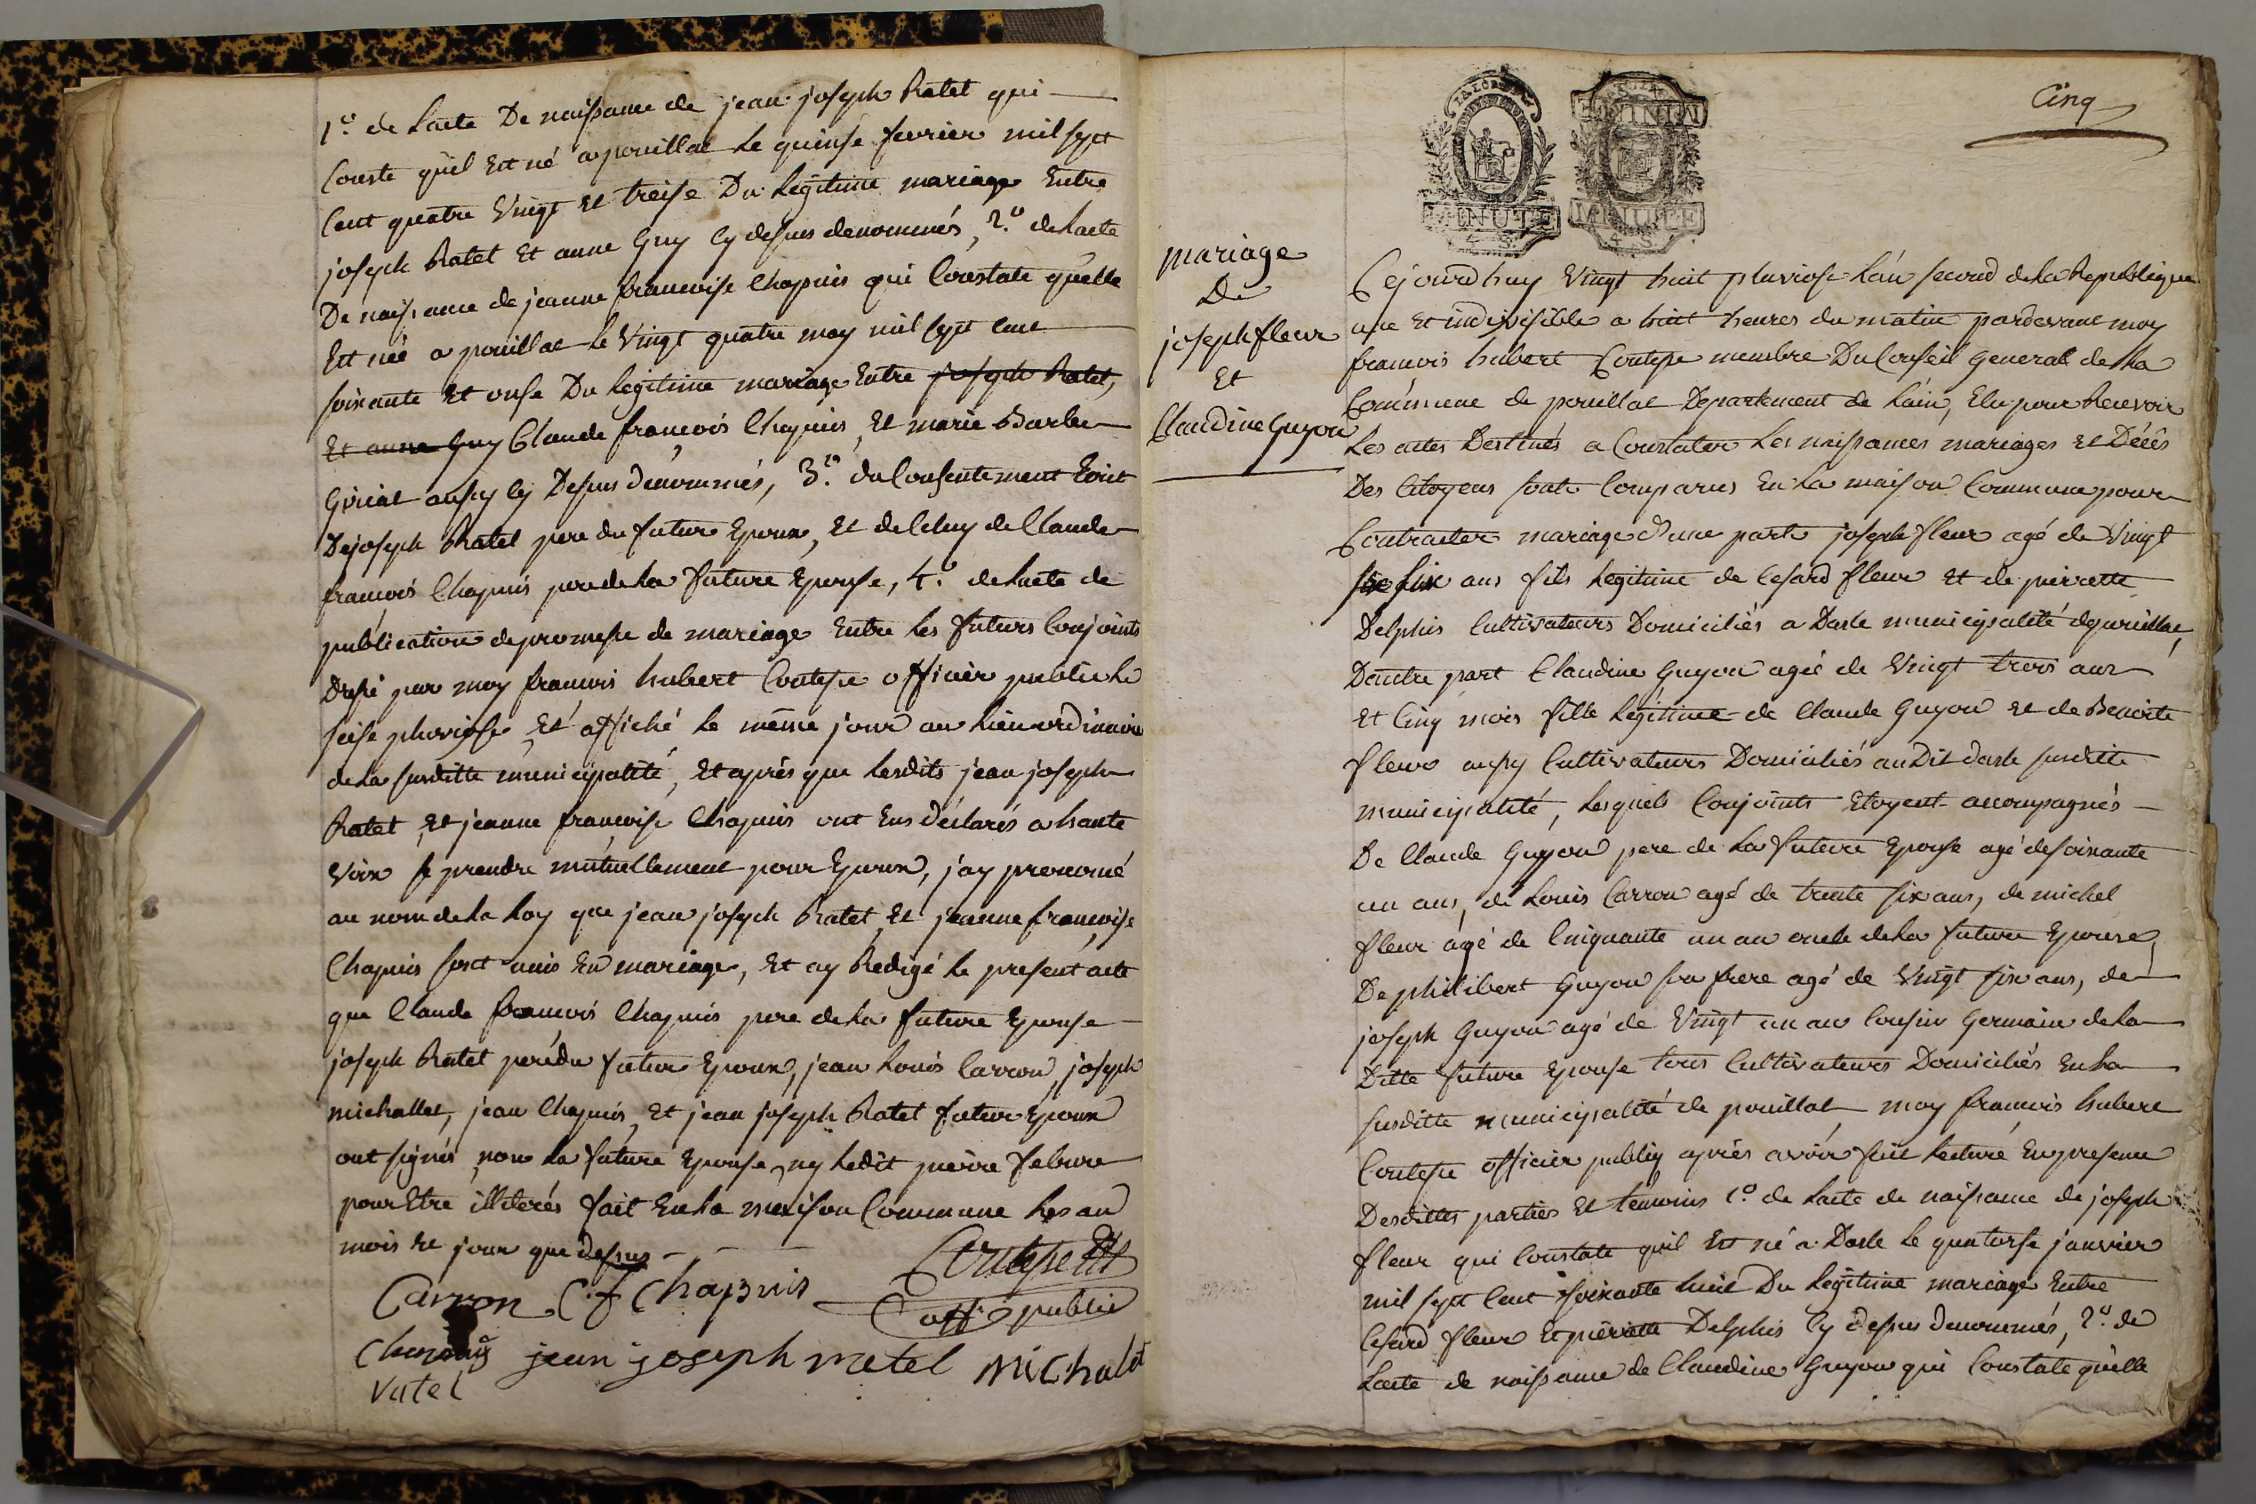 1.º de Lacte De naissance de jean joseph Ratel qui
Conste quil Est né a pouillat Le quinse fevrier mil sept
Cent quatre Vingt et treise Du Legitime mariage Entre
joseph Ratel Et anne Guy Cy dessus denommés, 2.º de Lacte
De naissance de jeanne francoise Chapuis qui Constate quelle
Est née a pouillat Le Vingt quatre may mil sept cent
soixante Et onse Du Legitime mariage Entre joseph Ratel,
Et anne Guy Claude francois Chapuis, Et marie Barbe
aussy Cy Dessus dénommés, 3.º du Consentement Ecrit
De joseph Ratel pere du future Epoux, Et de Celuy de Claude
francois Chapuis pere de La future Epouse, 4.º de Lacte de
publication de promesse de mariage Entre Les futurs Conjoints
Dressé par moy francois hubert Coutesse officier public Le
seise pluviose Et affiché Le même jour au Lieu ordinaire
de La susditte municipalité, Et aprés que Lesdits jean joseph
Ratel Et jeanne francoise Chapuis ont Eus déclarés a haute
Voix se prendre mutuellement pour Epoux, j'ay prenoncé
au nom de La Loy que jean joseph Ratel Et jeanne francoise
Chapuis sont unis En mariage, Et ay Redigé Le present acte
que Claude francois Chapuis pere de La future Epouse
joseph Ratel pere du future Epoux, jean Louis Carron, joseph
michallet, jean Chapuis, Et jean joseph Ratel futur Epoux
ont signés, non La future Epouse, ny Ledit pierre febvre
pour Etre illiterés fait En La maison Commune Les an
mois Et jour que dessus
Carron C f Chapuis Coutesse
off. public
Chapuis jean joseph ratel Michalet
ratel
Cinq
MINUTE
4 S.
MINUTE
4 S.
mariage
De
joseph fleur
Et
Claudine Guyon
Cejourdhuy Vingt huit pluviose L'an second de La Republique
une Et indivisible a huit heures du matin pardevant moy
francois hubert Coutesse membre Du Conseil General de La
Commune de pouillat Departement de L'ain, Elu pour Recevoir
Les actes Destinés a Constater Les naissances, mariages et Décés
Des Citoyens sonts Comparus En La maison Commune pour
Contracter mariage d'une parts joseph fleur agé de Vingt
six ans fils Legitime de Cesard fleur Et de pierrette
Delphis Cultivateurs Domiciliés a Dasle municipalité de pouillat,
Dautre part Claudine Guyon agée de Vingt trois ans
Et Cinq mois fille Légitime de Claude Guyon et de Benoite
fleur aussy Cultivateurs Domiciliés au Dit dasle susditte
municipalité, Lesquels Conjoints Etoyent accompagnés
De Claude Guyon pere de La future Epouse agé de soixante
un ans, de Louis Carron agé de trente six ans, de michel
fleur agé de Cinquante un an oncle de La future Epouse,
De philibert Guyon son frere agé de Vingt six ans, de
joseph Guyon agé de Vingt un an Cousin Germain de La
Ditte future Epouse tous Cultivateurs Domiciliés En La
susditte municipalité de pouillat, moy francois hubert
Coutesse officier publiq aprés avoir fait Lecture En presence
Desdittes parties Et temoins 1.º de Lacte de naissance de joseph
fleur qui Constate quil Est né a Dasle Le quatorse janvier
mil sept Cent soixante huit Du Legitime mariage Entre
Cesard fleur Et pierrette Delphis Cy dessus denommés, 2.º de
Lacte de naissance de Claudine Guyon qui Constate quelle